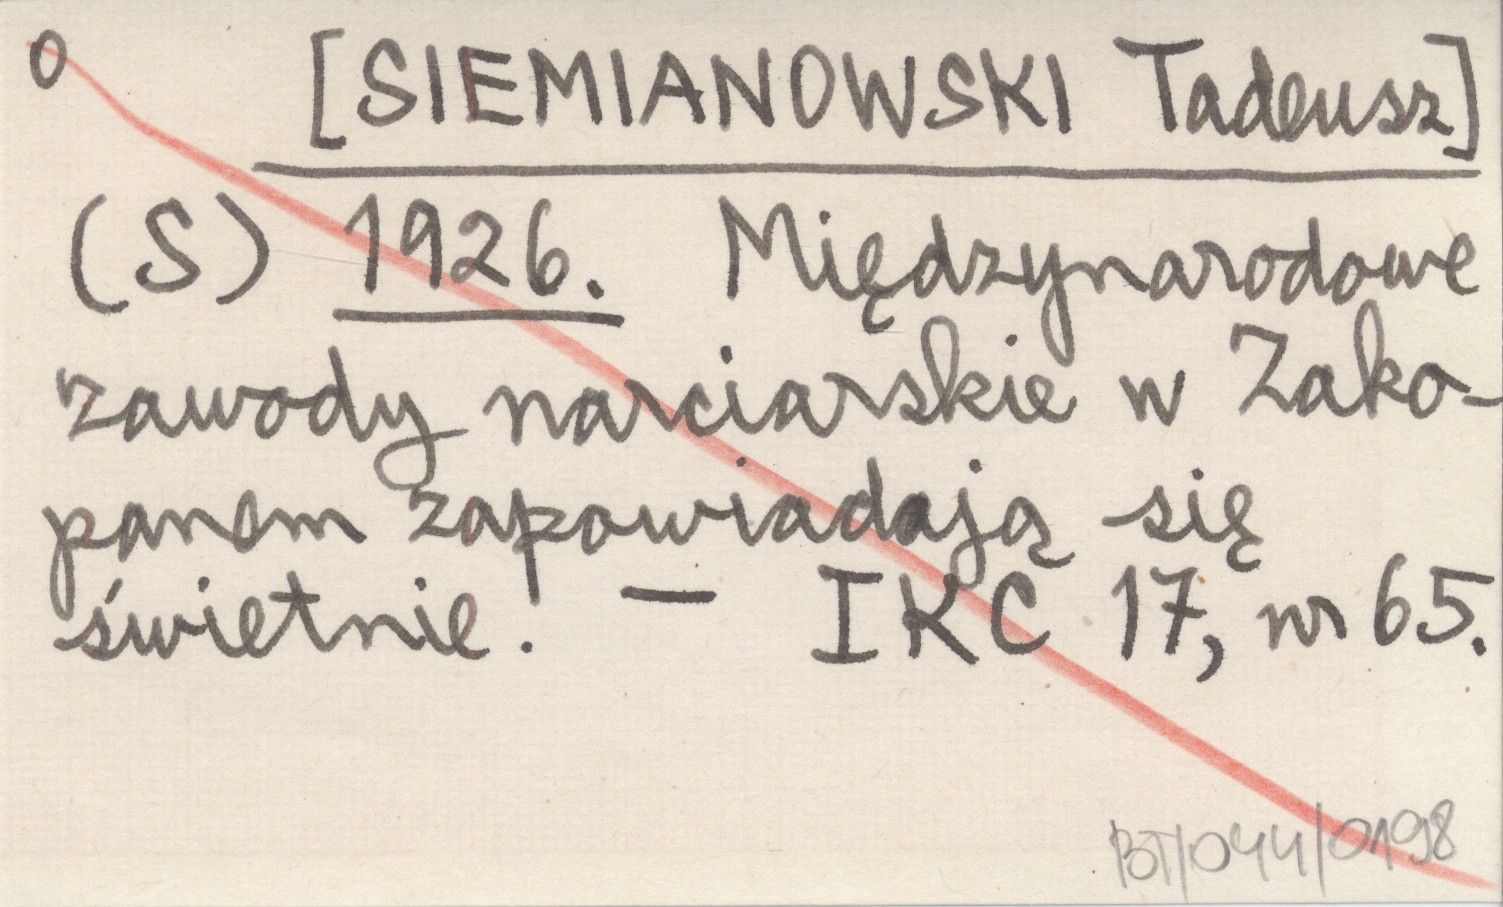 0 [SIEMIANOWSKI Tadeusz]
(S) 1926. Międzynarodowe
zawody narciarskie w Zako-
panem zapowiadają się
świetnie. — IKC 17, nr 65.
BT/044/0198